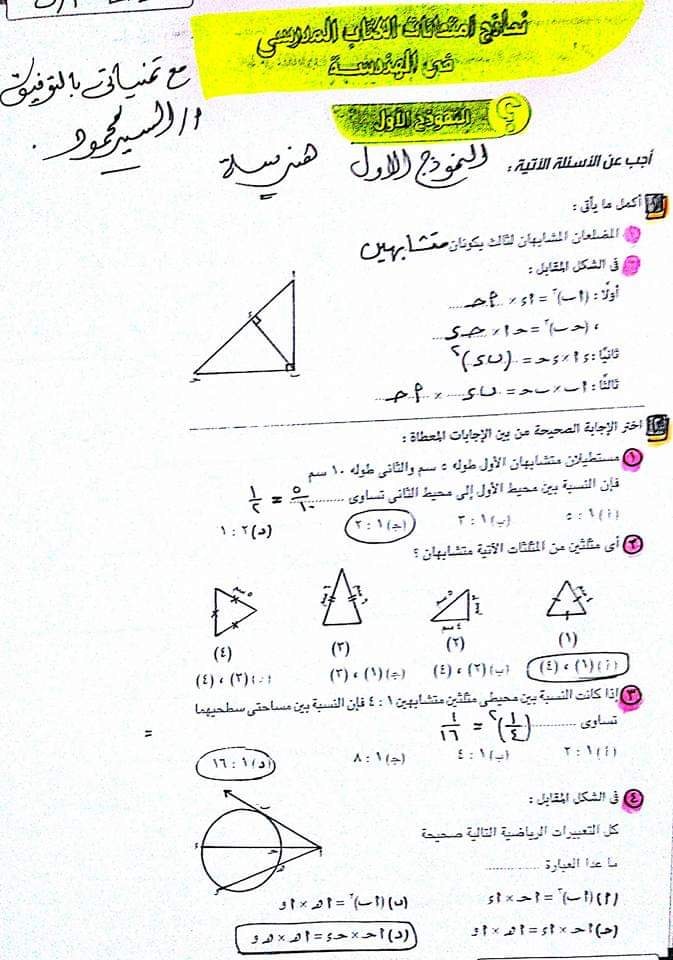 نماذج امتحانات الكتاب المدرسى
فى الهندسة
مع تمنياتى بالتوفيق
أ/ السيد محمود
النموذج الأول
أجب عن الأسئلة الآتية : النموذج الاول هندسة
١ أكمل ما يأتى :
١ المضلعان المشابهان لثالث يكونان متشابهين
٢ فى الشكل المقابل :
أولًا : (اب)٢ = اء × احـ
، (حـب)٢ = حـا × حـء
ثانيًا : ءا × ءحـ = (بء)٢
ثالثًا : اب × بحـ = بء × احـ
ا
ء
حـ
ب
٢ اختر الإجابة الصحيحة من بين الإجابات المعطاة :
١ مستطيلان متشابهان الأول طوله ٥ سم والثانى طوله ١٠ سم
فإن النسبة بين محيط الأول إلى محيط الثانى تساوى ٥/١٠ = ١/٢
(أ) ١ : ٥ (ب) ١ : ٣ (جـ) ١ : ٢ (د) ٢ : ١
٢ أى مثلثين من المثلثات الآتية متشابهان ؟
(١) (٢) (٣) (٤)
(أ) (١) ، (٤) (ب) (٢) ، (٤) (جـ) (١) ، (٣) (د) (٣) ، (٤)
٣ إذا كانت النسبة بين محيطى مثلثين متشابهين ١ : ٤ فإن النسبة بين مساحتى سطحيهما
تساوى (١/٤)٢ = ١/١٦
=
(أ) ١ : ٢ (ب) ١ : ٤ (جـ) ١ : ٨ (د) ١ : ١٦
٤ فى الشكل المقابل :
كل التعبيرات الرياضية التالية صحيحة
ما عدا العبارة
ب
ء
حـ
ا
هـ
و
(أ) (اب)٢ = احـ × اء (ب) (اب)٢ = اهـ × او
(حـ) احـ × اء = اهـ × او (د) احـ × حـء = اهـ × هـو